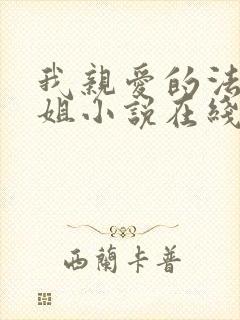 我親愛的法
姐小說在綫
西蘭卡普